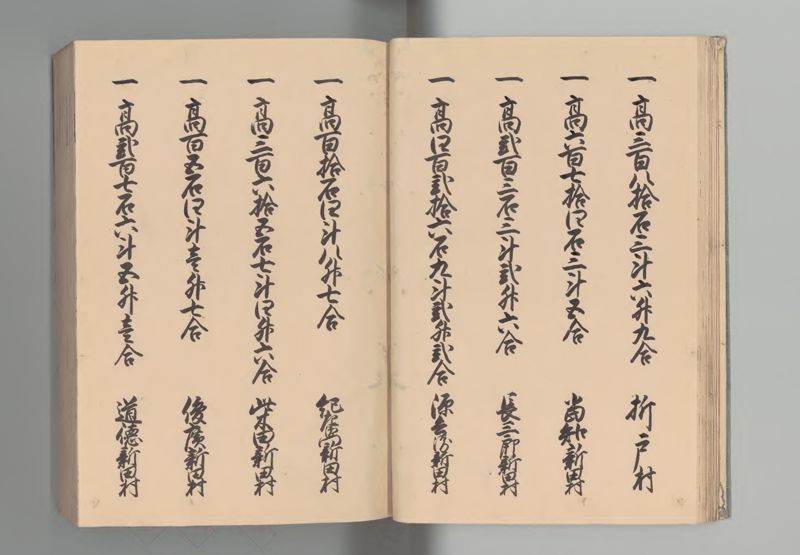 一高三百八拾石三斗六升九合 折戸村
一高六百七拾四石三斗五合 当知新田村
一高弐百三石三斗弐升六合 長三郎新田村
一高四百弐拾六石九斗弐升弐合 源兵衛新田村
一高百拾石四斗八升七合 紀 新田村
一高三百六拾五石七斗四升六合 柴田新田村
一高百五石四斗壱升七合 後廣新田村
一高弐百七石六斗五升壱合 道徳新田村